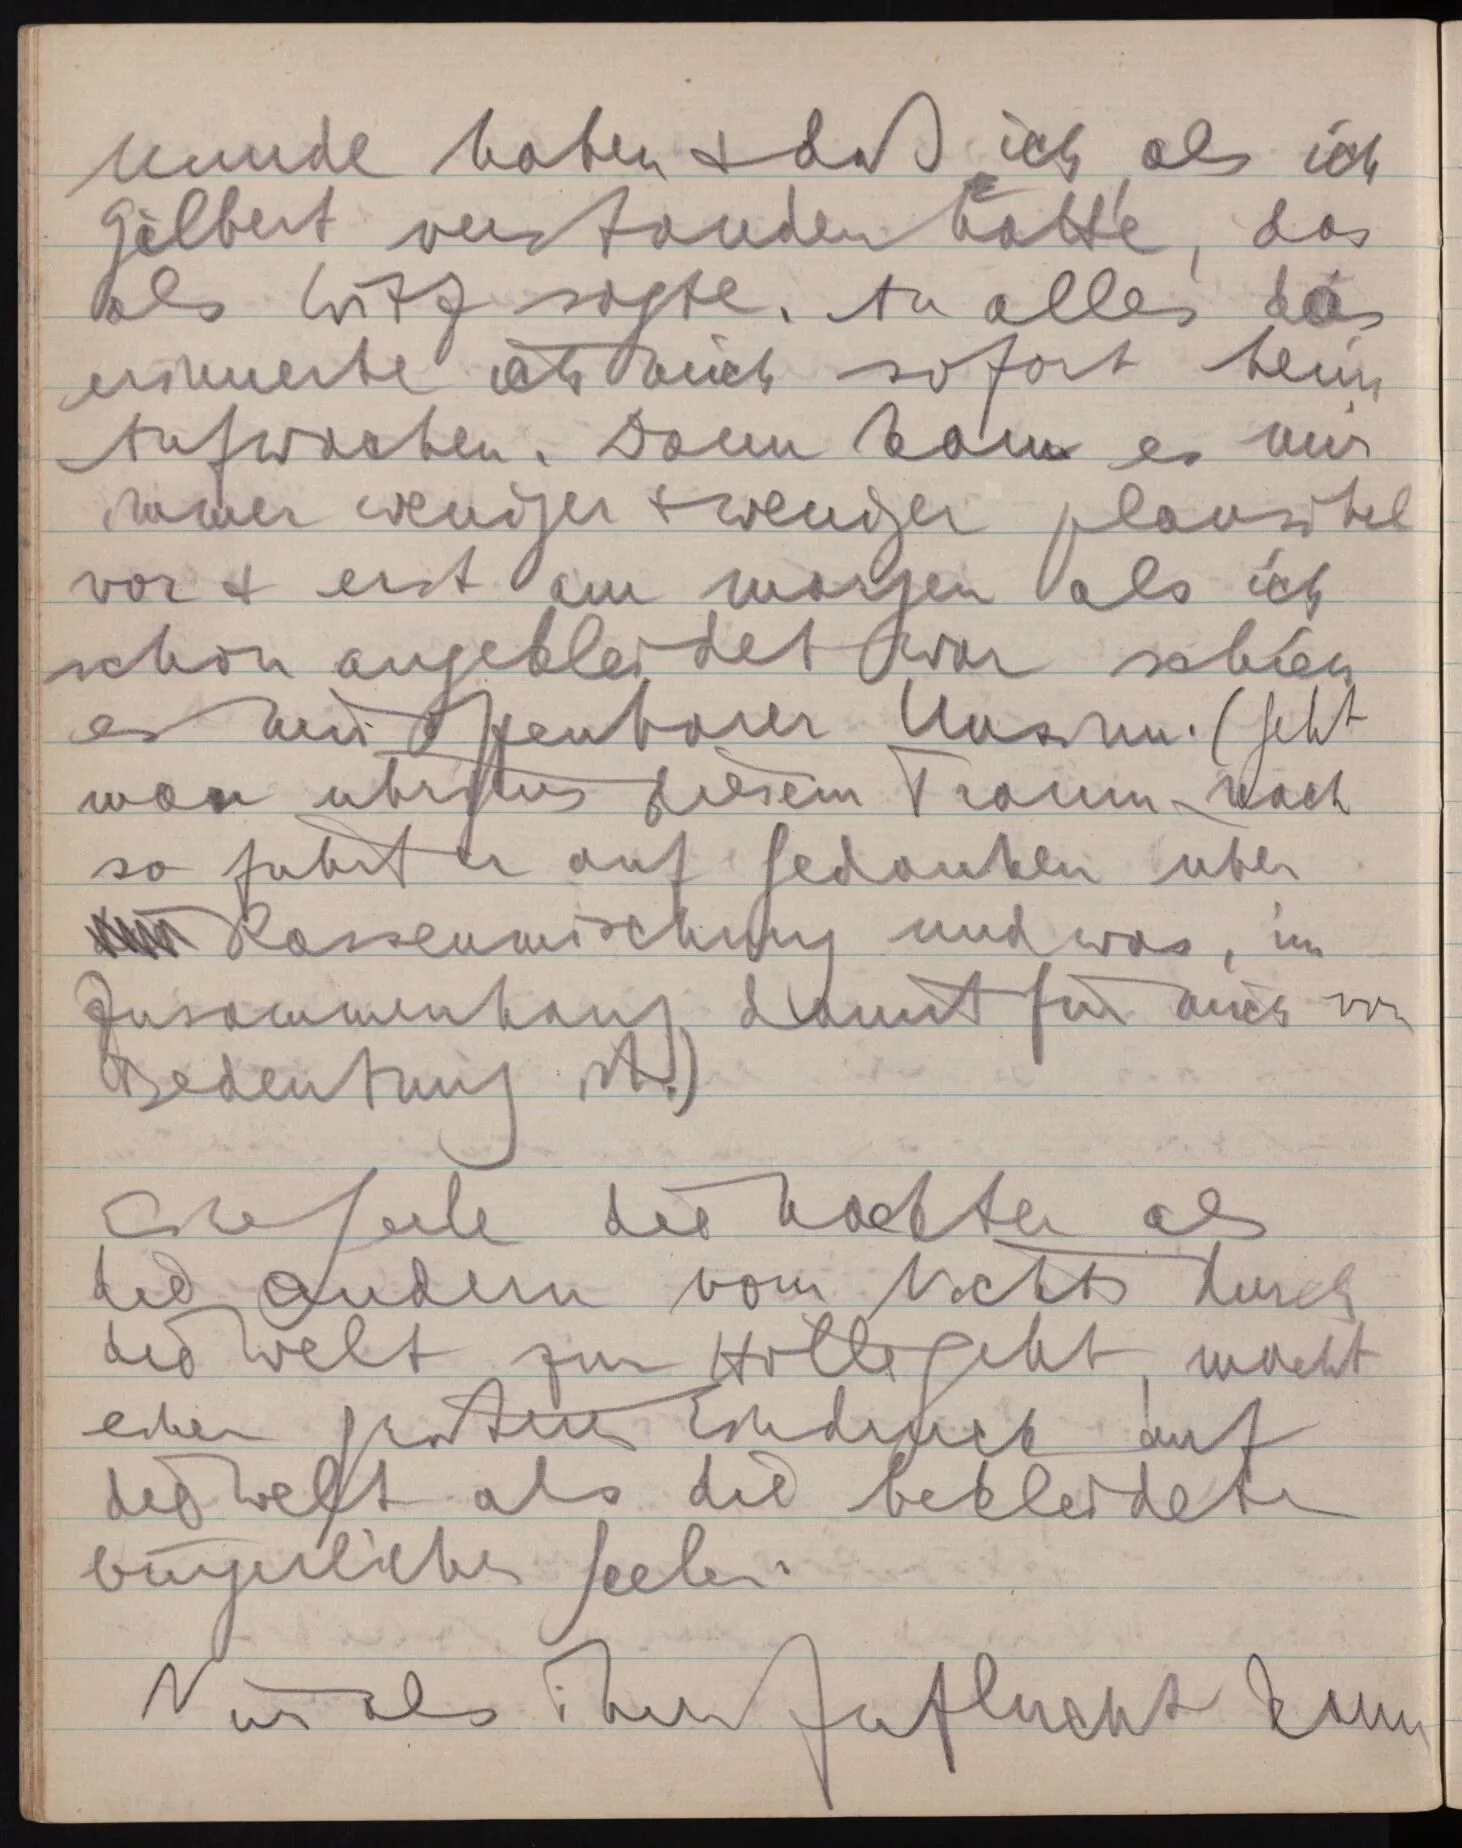 Munde haben & daß ich, als ich
Gilbert verstanden hatte, das
als Witz sagte. An alles das
erinnerte ich mich sofort beim
Aufwachen. Dann kam es mir
immer weniger & weniger plausibel
vor & erst am morgen als ich
schon angekleidet war schien
es mir offenbarer Unsinn. (Geht
man übrigens diesem Traum nach
so führt er auf Gedanken über
Rassenmischung und was, im
Zusammenhang damit für mich von
Bedeutung ist.)
Eine Seele die nackter als
die andern vom Nichts durch
die Welt zur Hölle geht, macht
einen größeren Eindruck auf
die Welt als die bekleideten
bürgerlichen Seelen.
Nur als ihre Zuflucht kann